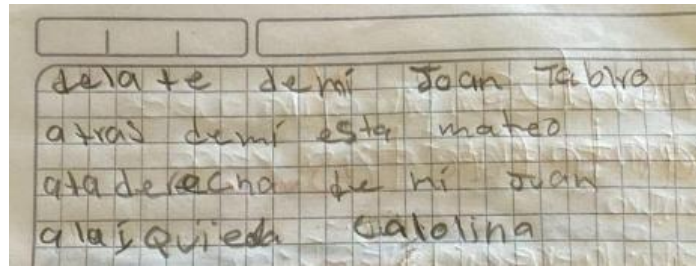 delate demi Joan Tabiro
atras demi esta mateo
ala derecha de mi Juan
a la isquieda calolina